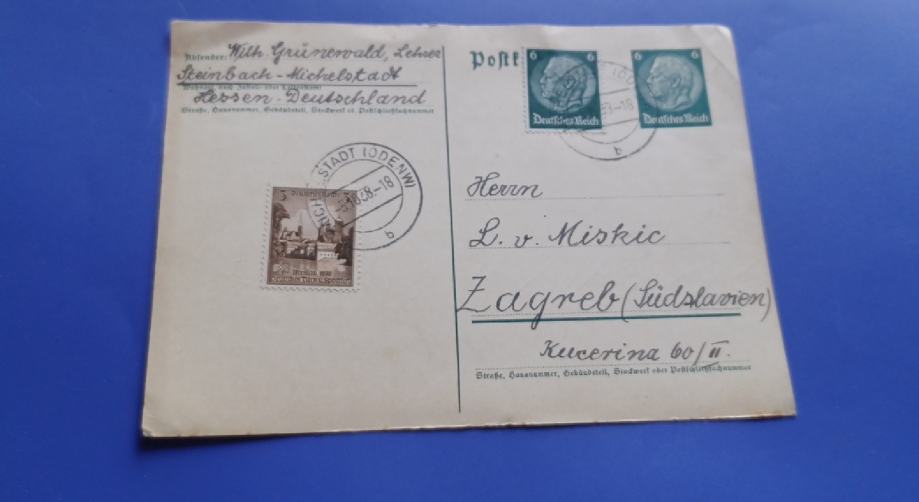 Absender: Wilh. Grünewald, Lehrer
Steinbach-Michelstadt
Wohnort, auch Zustell- oder Leitpostamt
Hessen-Deutschland
Straße, Hausnummer, Gebäudeteil, Stockwerk od. Postschließfachnummer
Postk
6 6
Deutsches Reich
6 6
Deutsches Reich
STADT (ODENW)
38.-18
b
3 3
b
Herrn
L. v. Miskic
Zagreb (Südslavien)
Kucerina 60/II.
Straße, Hausnummer, Gebäudeteil, Stockwerk oder Postschließfachnummer